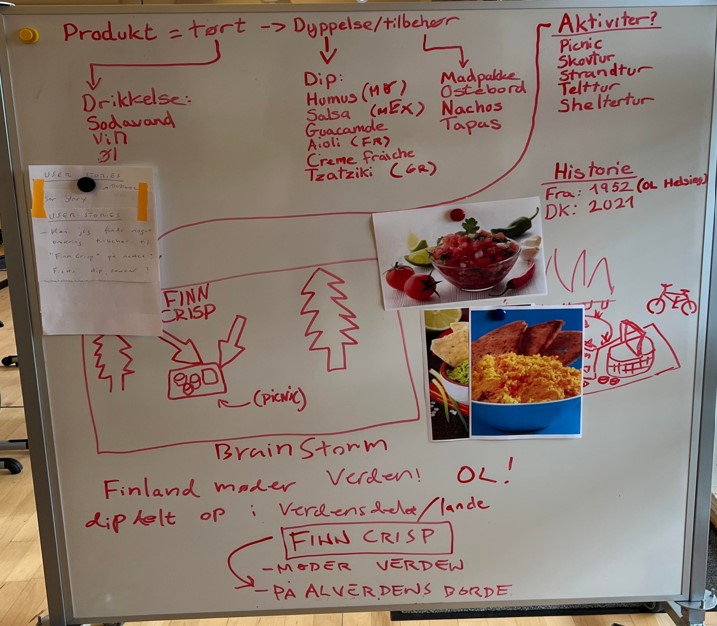 Produkt = tørt -> Dyppelse/tilbehør
Drikkelse:
Sodavand
Vin
Øl
Dip:
Humus (MØ)
Salsa (MEX)
Guacamole
Aioli (FR)
Creme fraiche
Tzatziki (GR)
Madpakke
Ostebord
Nachos
Tapas
Aktiviter?
Picnic
Skovtur
Strandtur
Telttur
Sheltertur
Historie
Fra: 1952 (OL Helsing
DK: 2021
USER STORIES
"Finn Crisp" på
FINN
CRISP
(PICNIC)
BrainStorm
Finland møder Verden! OL!
dip delt op i verdensdele/lande
FINN CRISP
- MØDER VERDEN
- PÅ ALVERDENS BORDE